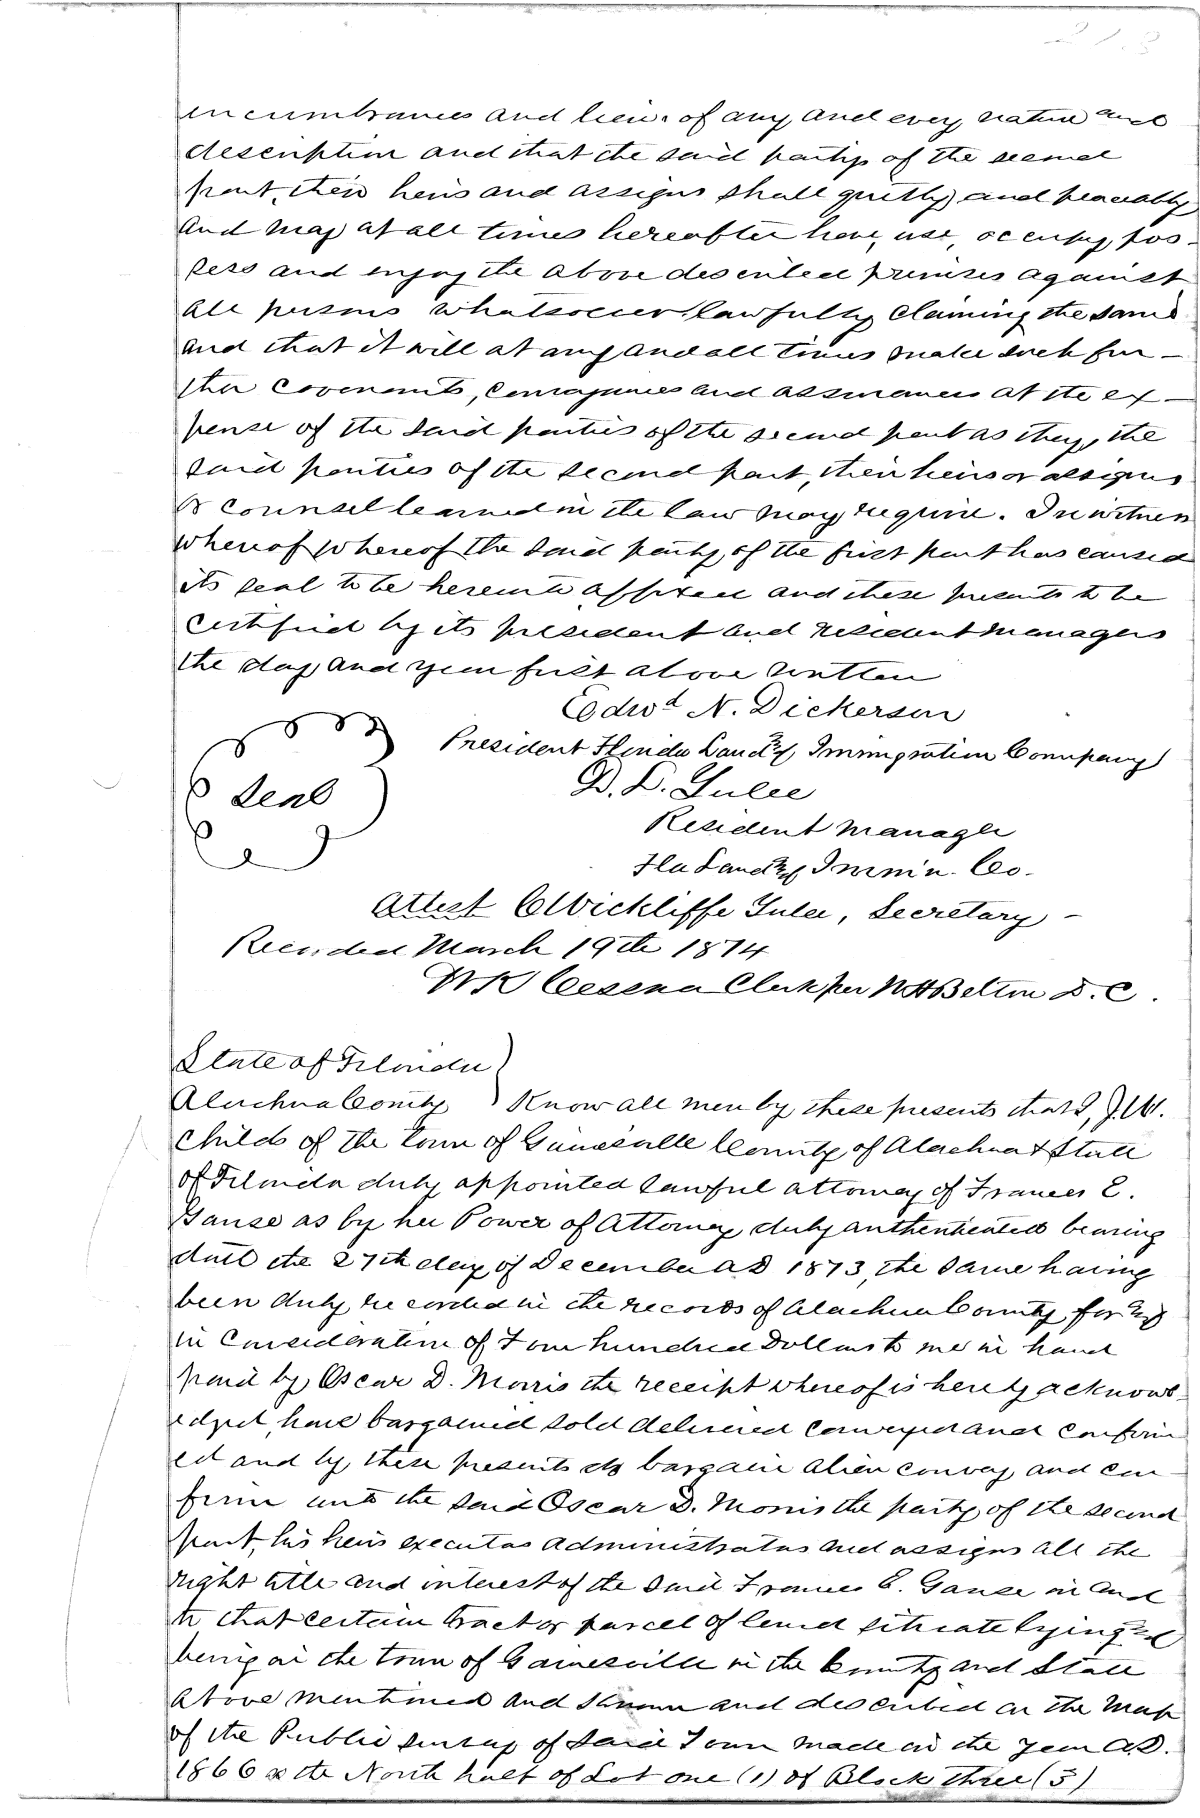 213
incumbrances and liens of any and every nature and
description and that the said party of the second
part, their heirs and assigns shall quietly and peaceably
and may at all times hereafter have, use, occupy, pos-
sess and enjoy the above described premises against
all persons whatsoever lawfully claiming the same
and that it will at any and all times make such fur-
ther covenants, conveyances and assurances at the ex-
pense of the said parties of the second part as they, the
said parties of the second part, their heirs or assigns
or counsel learned in the law may require. In witness
whereof whereof the said party of the first part has caused
its seal to be hereunto affixed and these presents to be
certified by its president and resident managers
the day and year first above written
Edwd N. Dickerson
President Florida Land & Immigration Company
D. L. Yulee
Seal
Resident Manager
Fla Land & Immin. Co.
Attest C Wickliffe Yulee, Secretary -
Recorded March 19th 1874
W K Cessna Clerk per N H Belton D. C.
State of Florida )
Alachua County ) Know all men by these presents that I, J. W.
Childs of the town of Gainesville County of Alachua & State
of Florida duly appointed lawful attorney of Frances E.
Ganse as by her Power of Attorney duly authenticated bearing
date the 27th day of December A D 1873, the same having
been duly recorded in the records of Alachua County for and
in Consideration of Four hundred Dollars to me in hand
paid by Oscar D. Morris the receipt whereof is hereby acknowl-
edged, have bargained sold delivered conveyed and confirm
ed and by these presents do bargain alien convey and con-
firm unto the said Oscar D. Morris the party of the second
part, his heirs executors administrators and assigns all the
right title and interest of the said Frances E. Ganse in and
to that certain tract or parcel of land situate lying and
being in the town of Gainesville in the County and State
above mentioned and shown and described on the Map
of the Public survey of said Town made in the year A.D.
1866 as the North half of Lot one (1) of Block three (3)